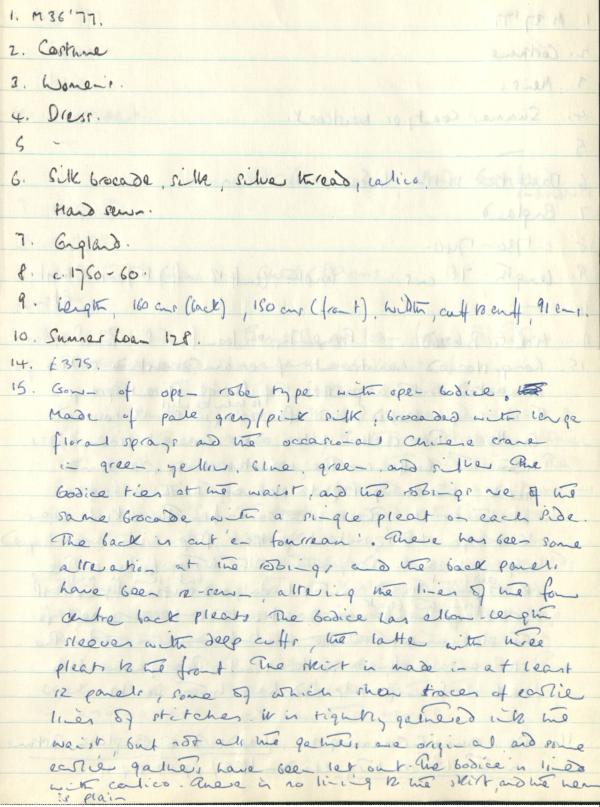 1. M36'77.
2. Costume
3. Women's.
4. Dress.
5 -
6. Silk brocade, silk, silver thread, calico.
Hand sewn.
7. England.
8. c.1750-60.
9. Length, 160 cms (back), 150 cms (front), width, cuff to cuff, 91 cms.
10. Sunner Loan 128.
14. £375.
15. Gown of open robe type with open bodice.
Made of pale grey/pink silk, brocaded with large
floral sprays and the occasional Chinese crane
in green, yellow, blue, green and silver. The
bodice ties at the waist, and the robings are of the
same brocade with a single pleat on each side.
The back is cut 'en fourreau'. There has been some
alteration at the robings and the back panels
have been re-sewn, altering the lines of the four
centre back pleats. The bodice has elbow-length
sleeves with deep cuffs, the latter with three
pleats to the front. The skirt is made in at least
12 panels, some of which show traces of earlier
lines of stitches. It is tightly gathered into the
waist, but not all the gathers are original and some
earlier gathers have been let out. The bodice is lined
with calico. There is no lining to the skirt, and the hem
is plain